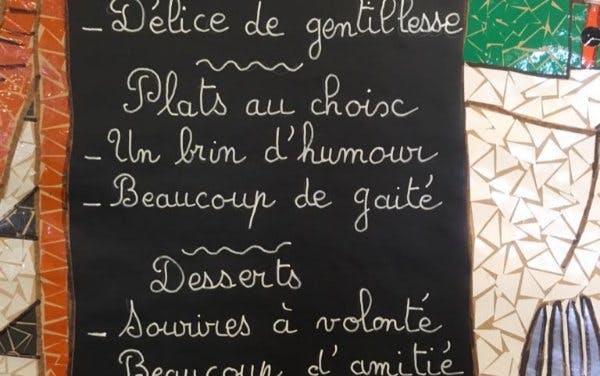 - Délice de gentillesse
Plats au choix
- Un brin d'humour
- Beaucoup de gaité
Desserts
- Sourires à volonté
Beaucoup d'amitié